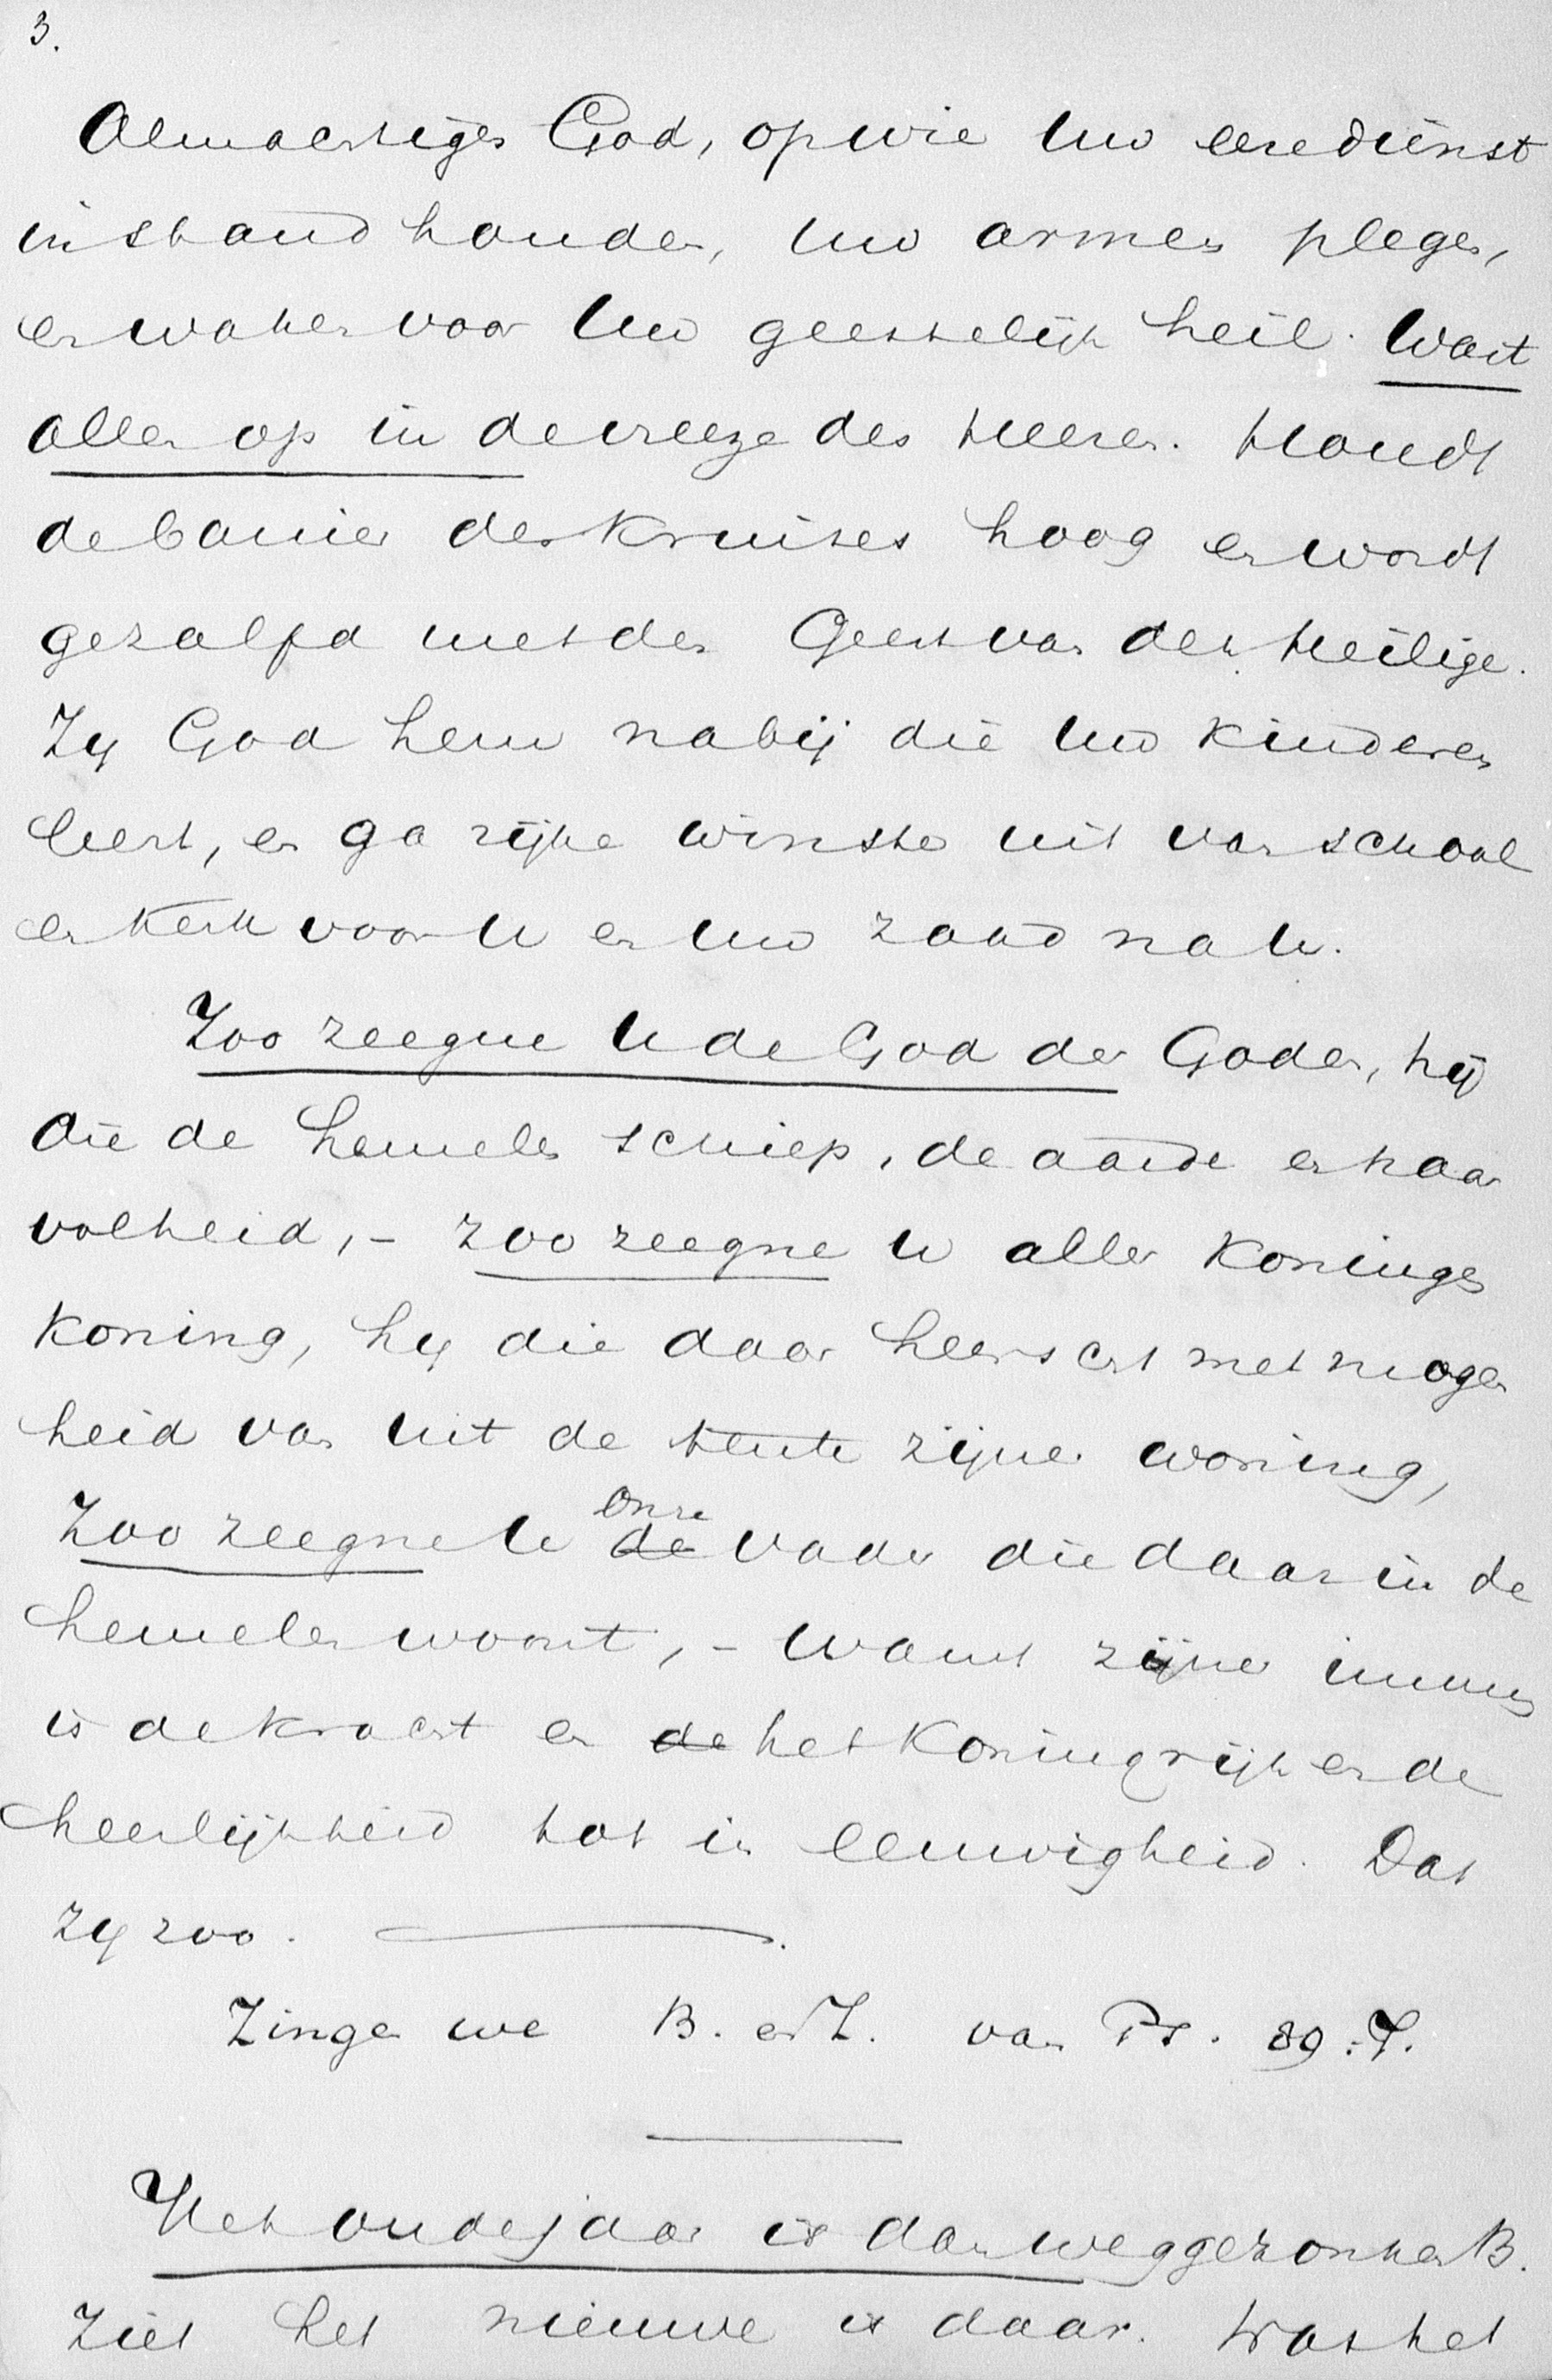 3.
Almachtigen God, op wie Uw eeredienst
in stand houden, Uw armen plegen,
en waken voor Uw geestelijk heil. Wast
allen op in de vreeze des Heeren. Houdt
de banier des Kruises hoog en wordt
gezalfd met den Geest van den Heilige.
Zy God hem nabij die Uw kinderen
leert, en ga rijke winste uit van school
en Kerk voor U en Uw zaad na U.
Zoo zeegne U de God der Goden, hij
die de hemelen schiep, de aarde en haar
volheid, - zoo zeegne U aller Koningen
Koning, hy die daar heerscht met mogen
heid van uit de tente zijner woning,
Onze
Zoo zeegne U de Vader die daar in de
hemelen woont, - want zijne immers
is de Kracht en de het Koningrijk en de
heerlijkheid tot in eeuwigheid. Dat
zy zoo.
Zingen we B. en Z. van Ps. 89:7.
Het oude jaar is dan weggezonken B.
Ziet het nieuwe is daar. Was het